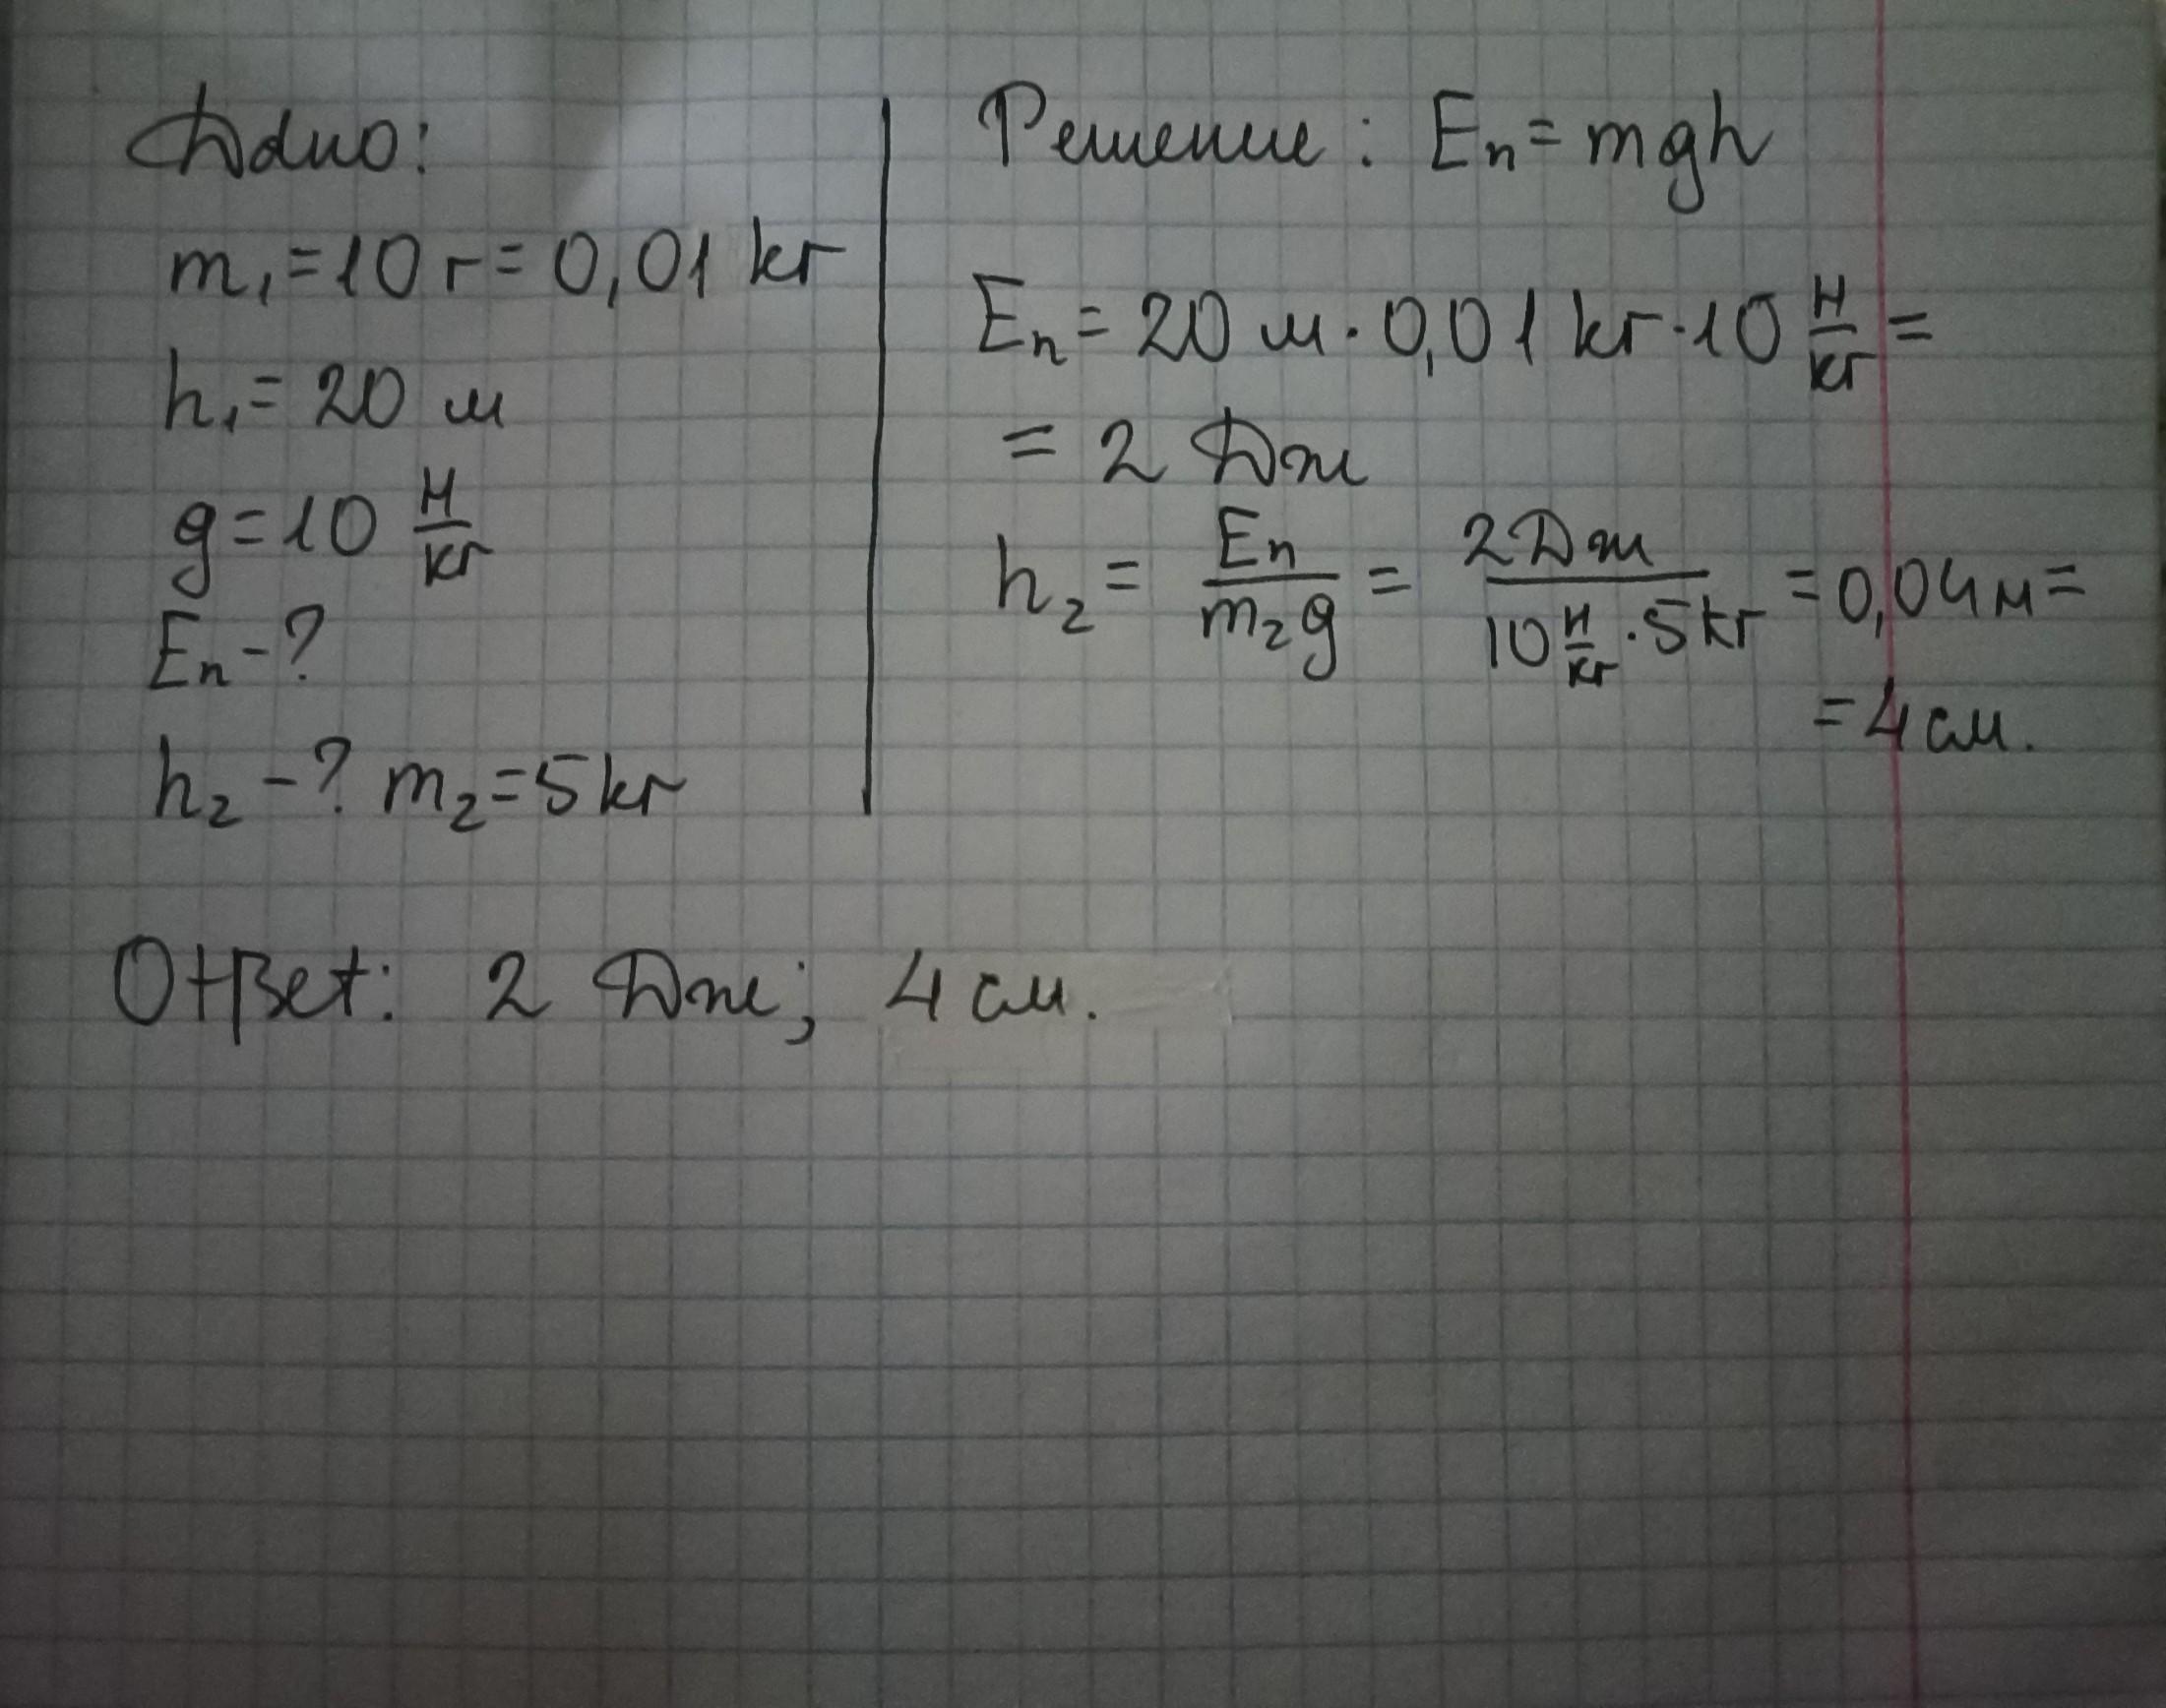 Дано:
m₁ = 10 г = 0,01 кг
h₁ = 20 м
g = 10 Н/кг
Eп - ?
h₂ - ? m₂ = 5 кг
Решение: Eп = mgh
Eп = 20 м · 0,01 кг · 10 Н/кг =
= 2 Дж
h₂ = Eп/m₂g = 2 Дж/10 Н/кг · 5 кг = 0,04 м =
= 4 см.
Ответ: 2 Дж; 4 см.